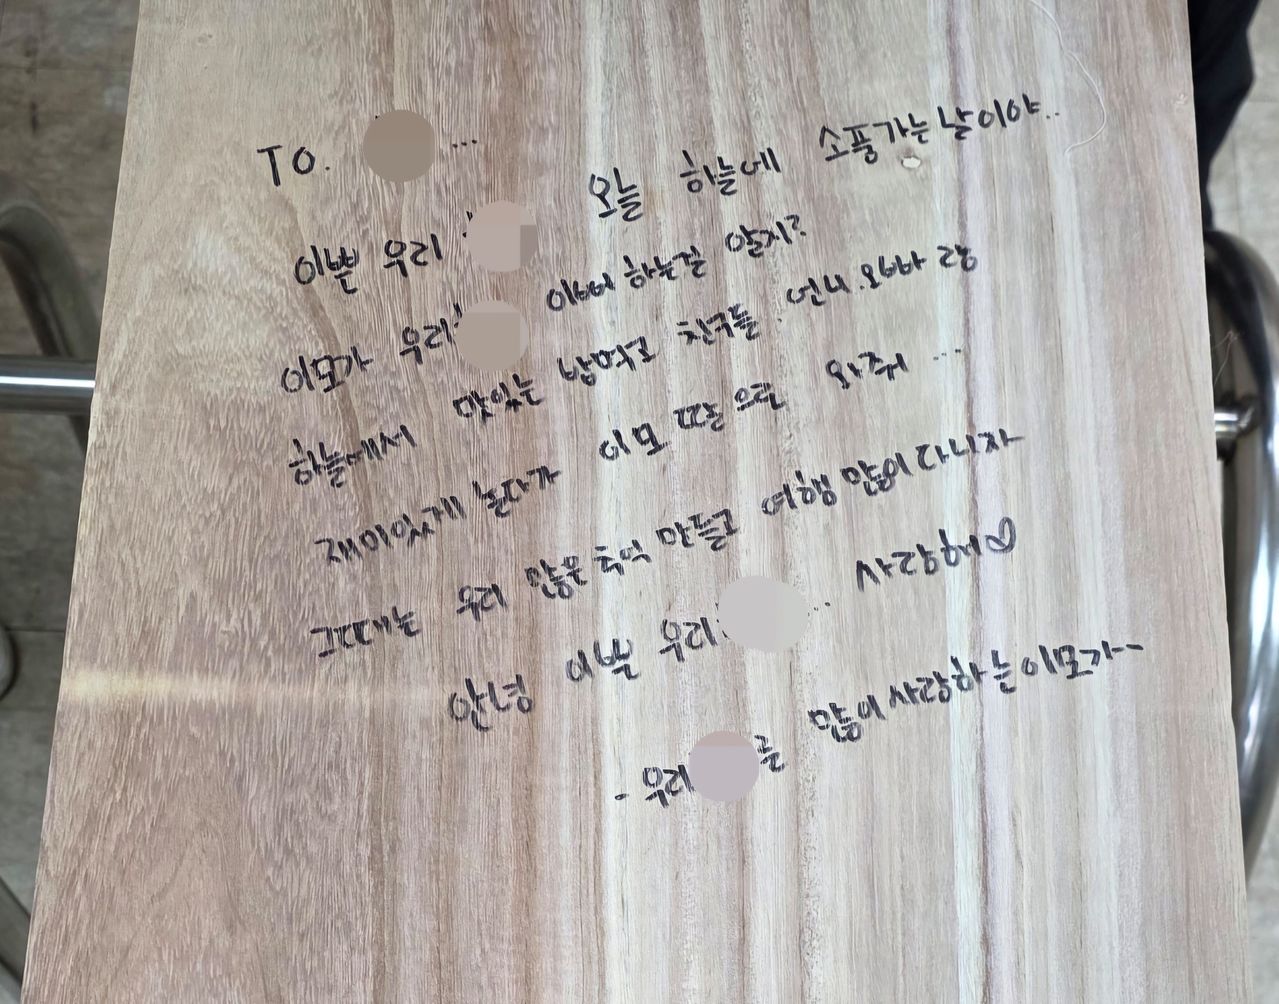 TO. ...
이쁜 우리 오늘 하늘에 소풍가는 날이야..
이모가 우리 이뻐 하는걸 알지?
하늘에서 맛있는 밥먹고 친구들. 언니.오빠야 랑
재미있게 놀다가 이모 딸 으로 와줘 ...
그때는 우리 많은 추억 만들고 여행 많이 다니자
안녕 이쁜 우리 ... 사랑해♡
- 우리 를 많이 사랑하는 이모가--